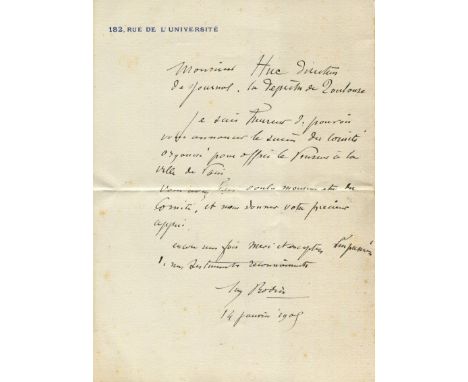 182, RUE DE L'UNIVERSITÉ
Monsieur Huc directeur
du journal. la Depeche de Toulouse
Je suis heureux de pouvoir
vous annoncer le succès du comité
organisé pour offrir le Penseur à la
Ville de Paris
Vous avez bien voulu
Comité, et nous donner votre precieux
appui.
encore une fois Merci et acceptez
mes sentiments reconnaissants
Rodin
14 janvier 1905